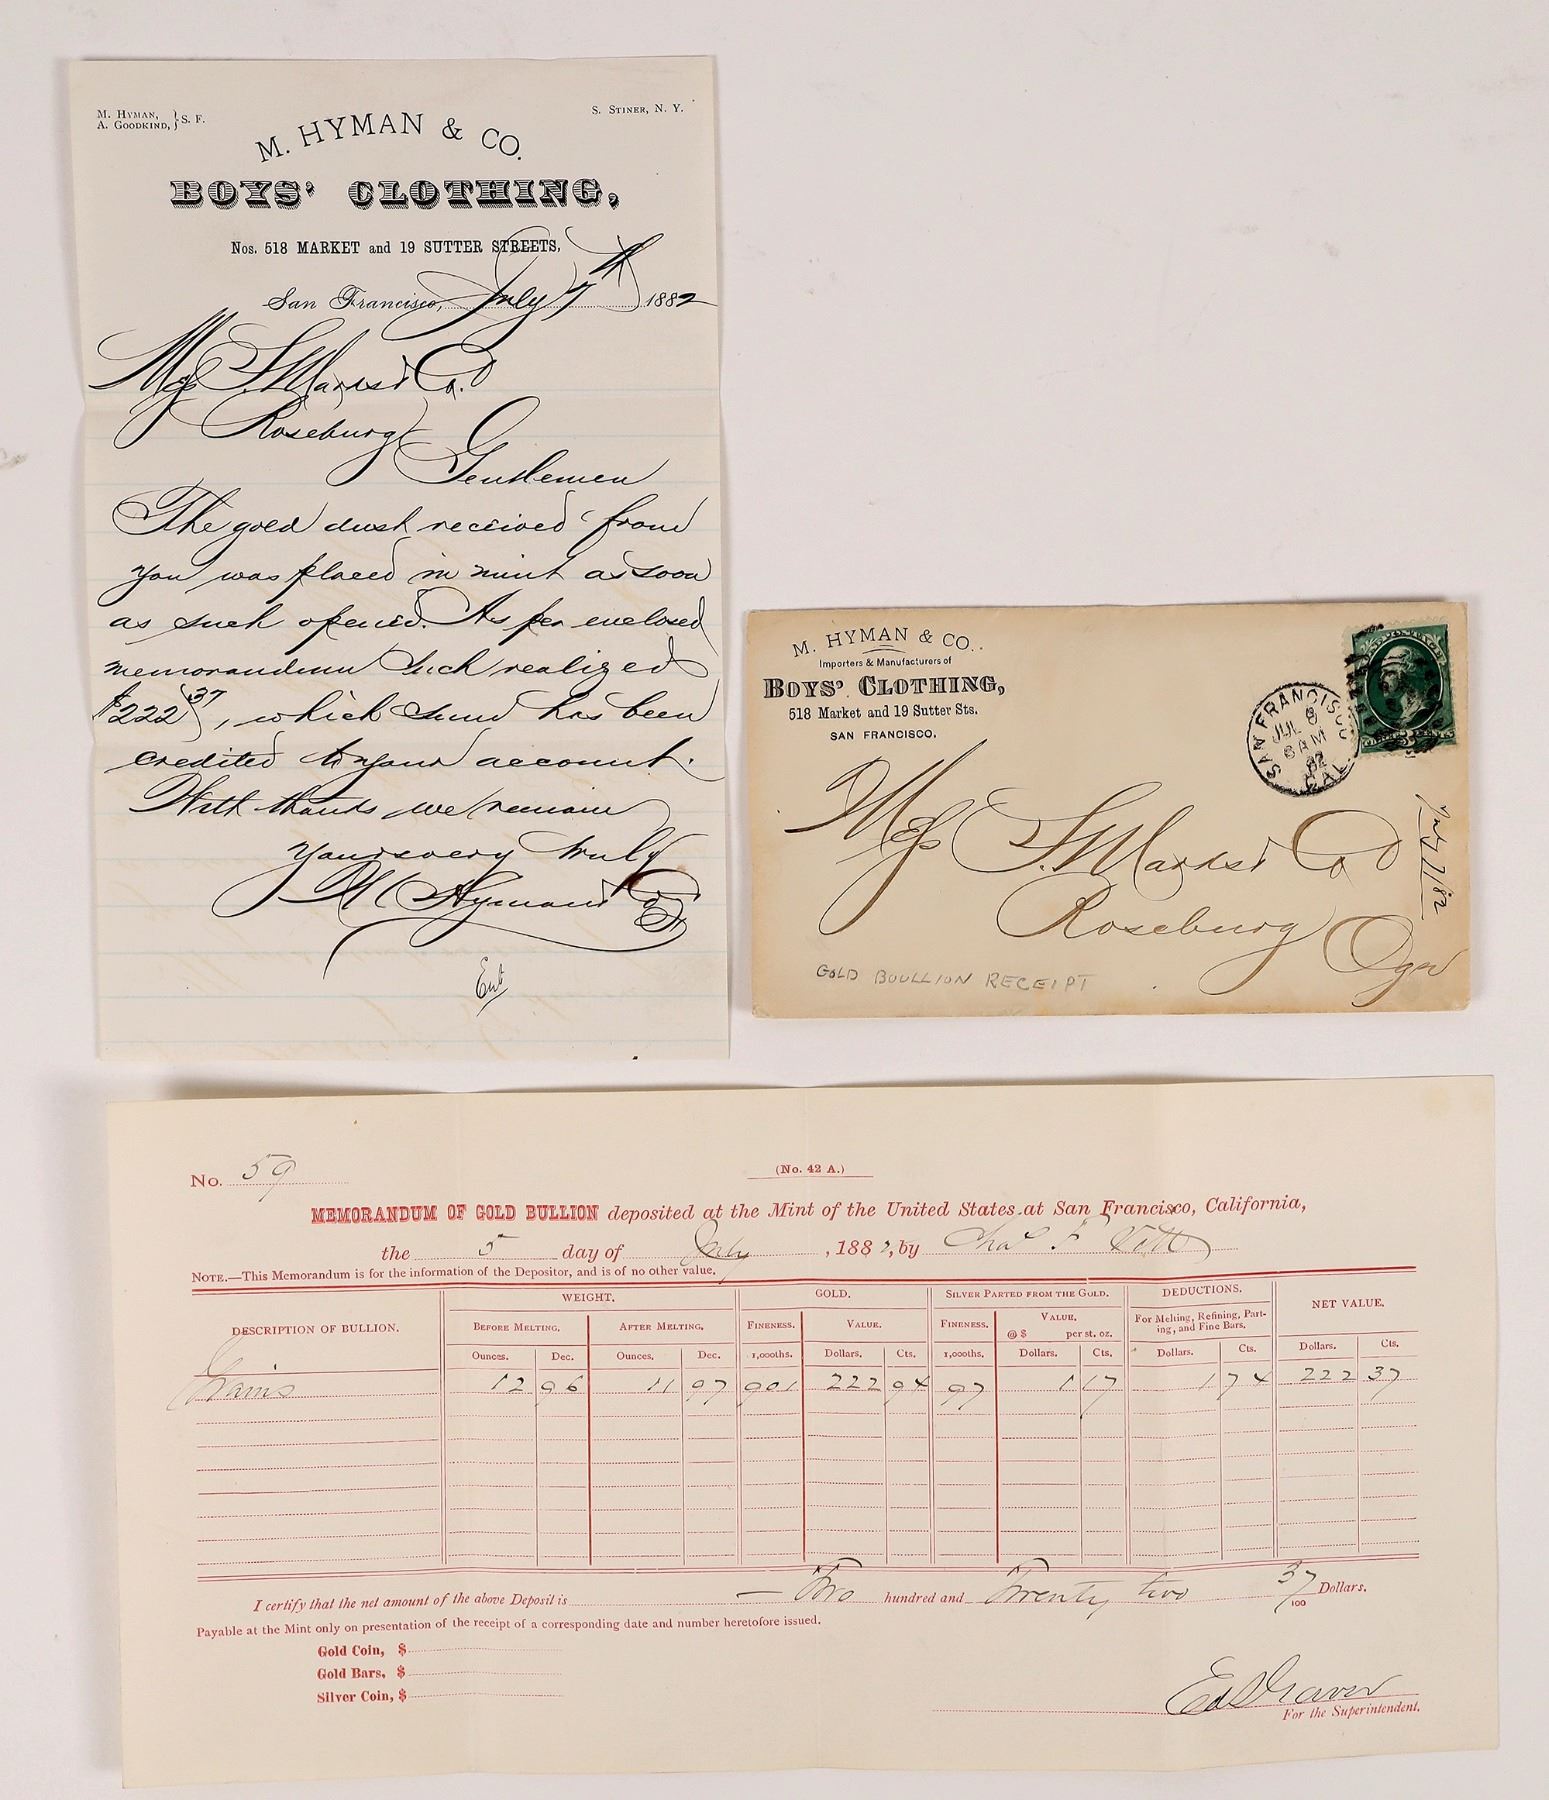 M. HYMAN, } S. F.
A. GOODKIND,
S. STINER, N. Y.
M. HYMAN & CO.
BOYS' CLOTHING,
Nos. 518 MARKET and 19 SUTTER STREETS,
San Francisco, July 7th 1882
Mess S. Marks & Co.
Roseburg
Gentlemen
The gold dust received from
you was placed in mint as soon
as such opened. As per enclosed
memorandum such realized
$222 37, which sum has been
credited to your account.
With thanks we remain
Yours very truly
M Hyman & Co
M. HYMAN & CO.
Importers & Manufacturers of
BOYS' CLOTHING,
518 Market and 19 Sutter Sts.
SAN FRANCISCO.
SAN FRANCISCO
JUL 8
6 AM
82
CAL
Mess S. Marks & Co
Roseburg
Ogn
July 7/82
GOLD BOULLION RECEIPT
No. 59
(No. 42 A.)
MEMORANDUM OF GOLD BULLION deposited at the Mint of the United States at San Francisco, California,
the 5 day of July, 1882, by Chas F
NOTE.—This Memorandum is for the information of the Depositor, and is of no other value.
DESCRIPTION OF BULLION. WEIGHT. GOLD. SILVER PARTED FROM THE GOLD. DEDUCTIONS. NET VALUE.
BEFORE MELTING. AFTER MELTING. FINENESS. VALUE. FINENESS. VALUE. @ $ per st. oz. For Melting, Refining, Parting, and Fine Bars.
Ounces. Dec. Ounces. Dec. 1,000ths. Dollars. Cts. 1,000ths. Dollars. Cts. Dollars. Cts. Dollars. Cts.
Grains 12 96 11 97 901 222 94 97 1 17 1 74 222 37
I certify that the net amount of the above Deposit is Two hundred and Twenty two 37/100 Dollars.
Payable at the Mint only on presentation of the receipt of a corresponding date and number heretofore issued.
Gold Coin, $
Gold Bars, $
Silver Coin, $
For the Superintendent.